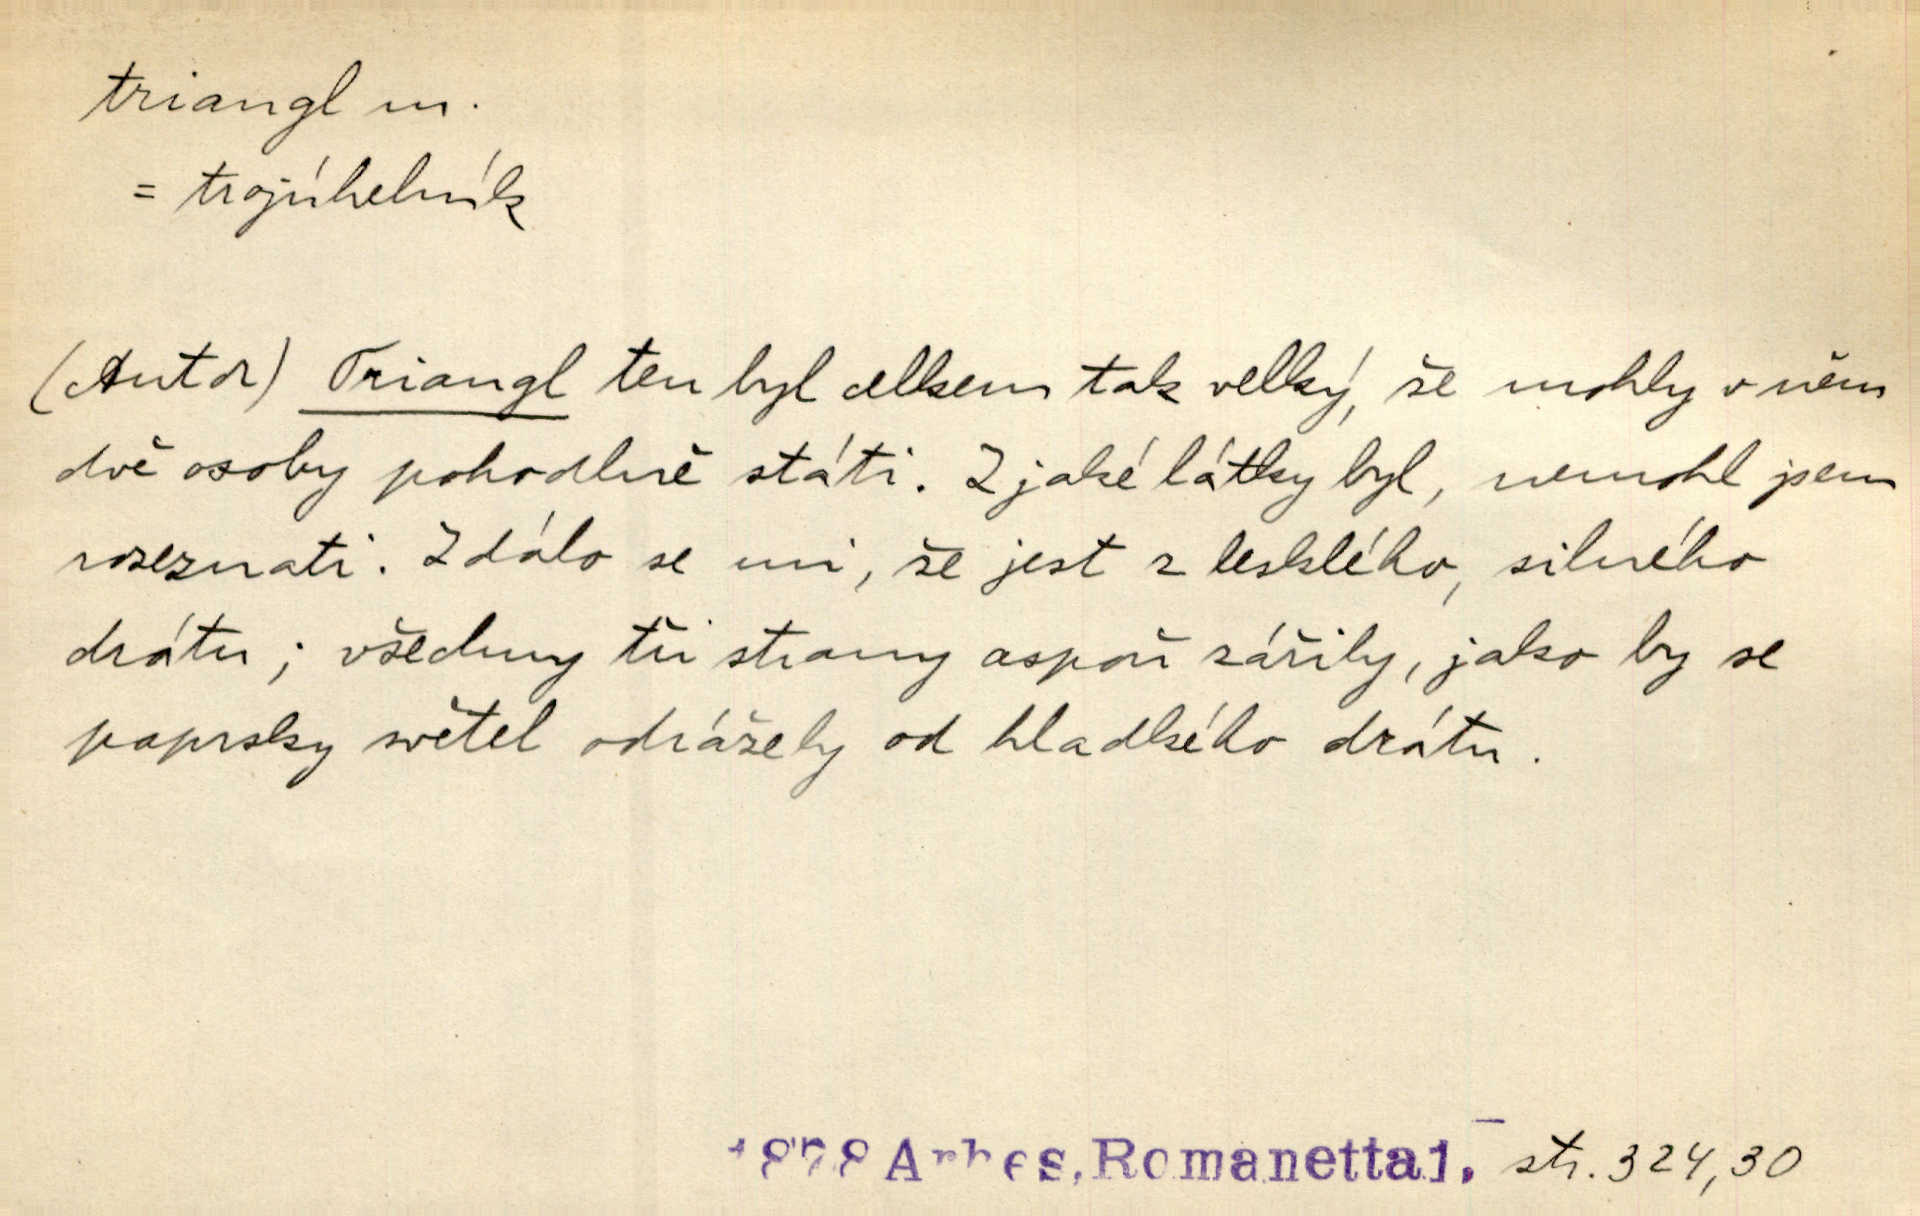 triangl m.
= trojúhelník
(Autor) Triangl ten byl celkem tak velký, že mohly v něm
dvě osoby pohodlně státi. Z jaké látky byl, nemohl jsem
rozeznati. Zdálo se mi, že jest z lesklého, silného
drátu; všechny tři strany aspoň zářily, jako by se
paprsky světel odrážely od hladkého drátu.
1878 Arbes, Romanetta 1. str. 324,30